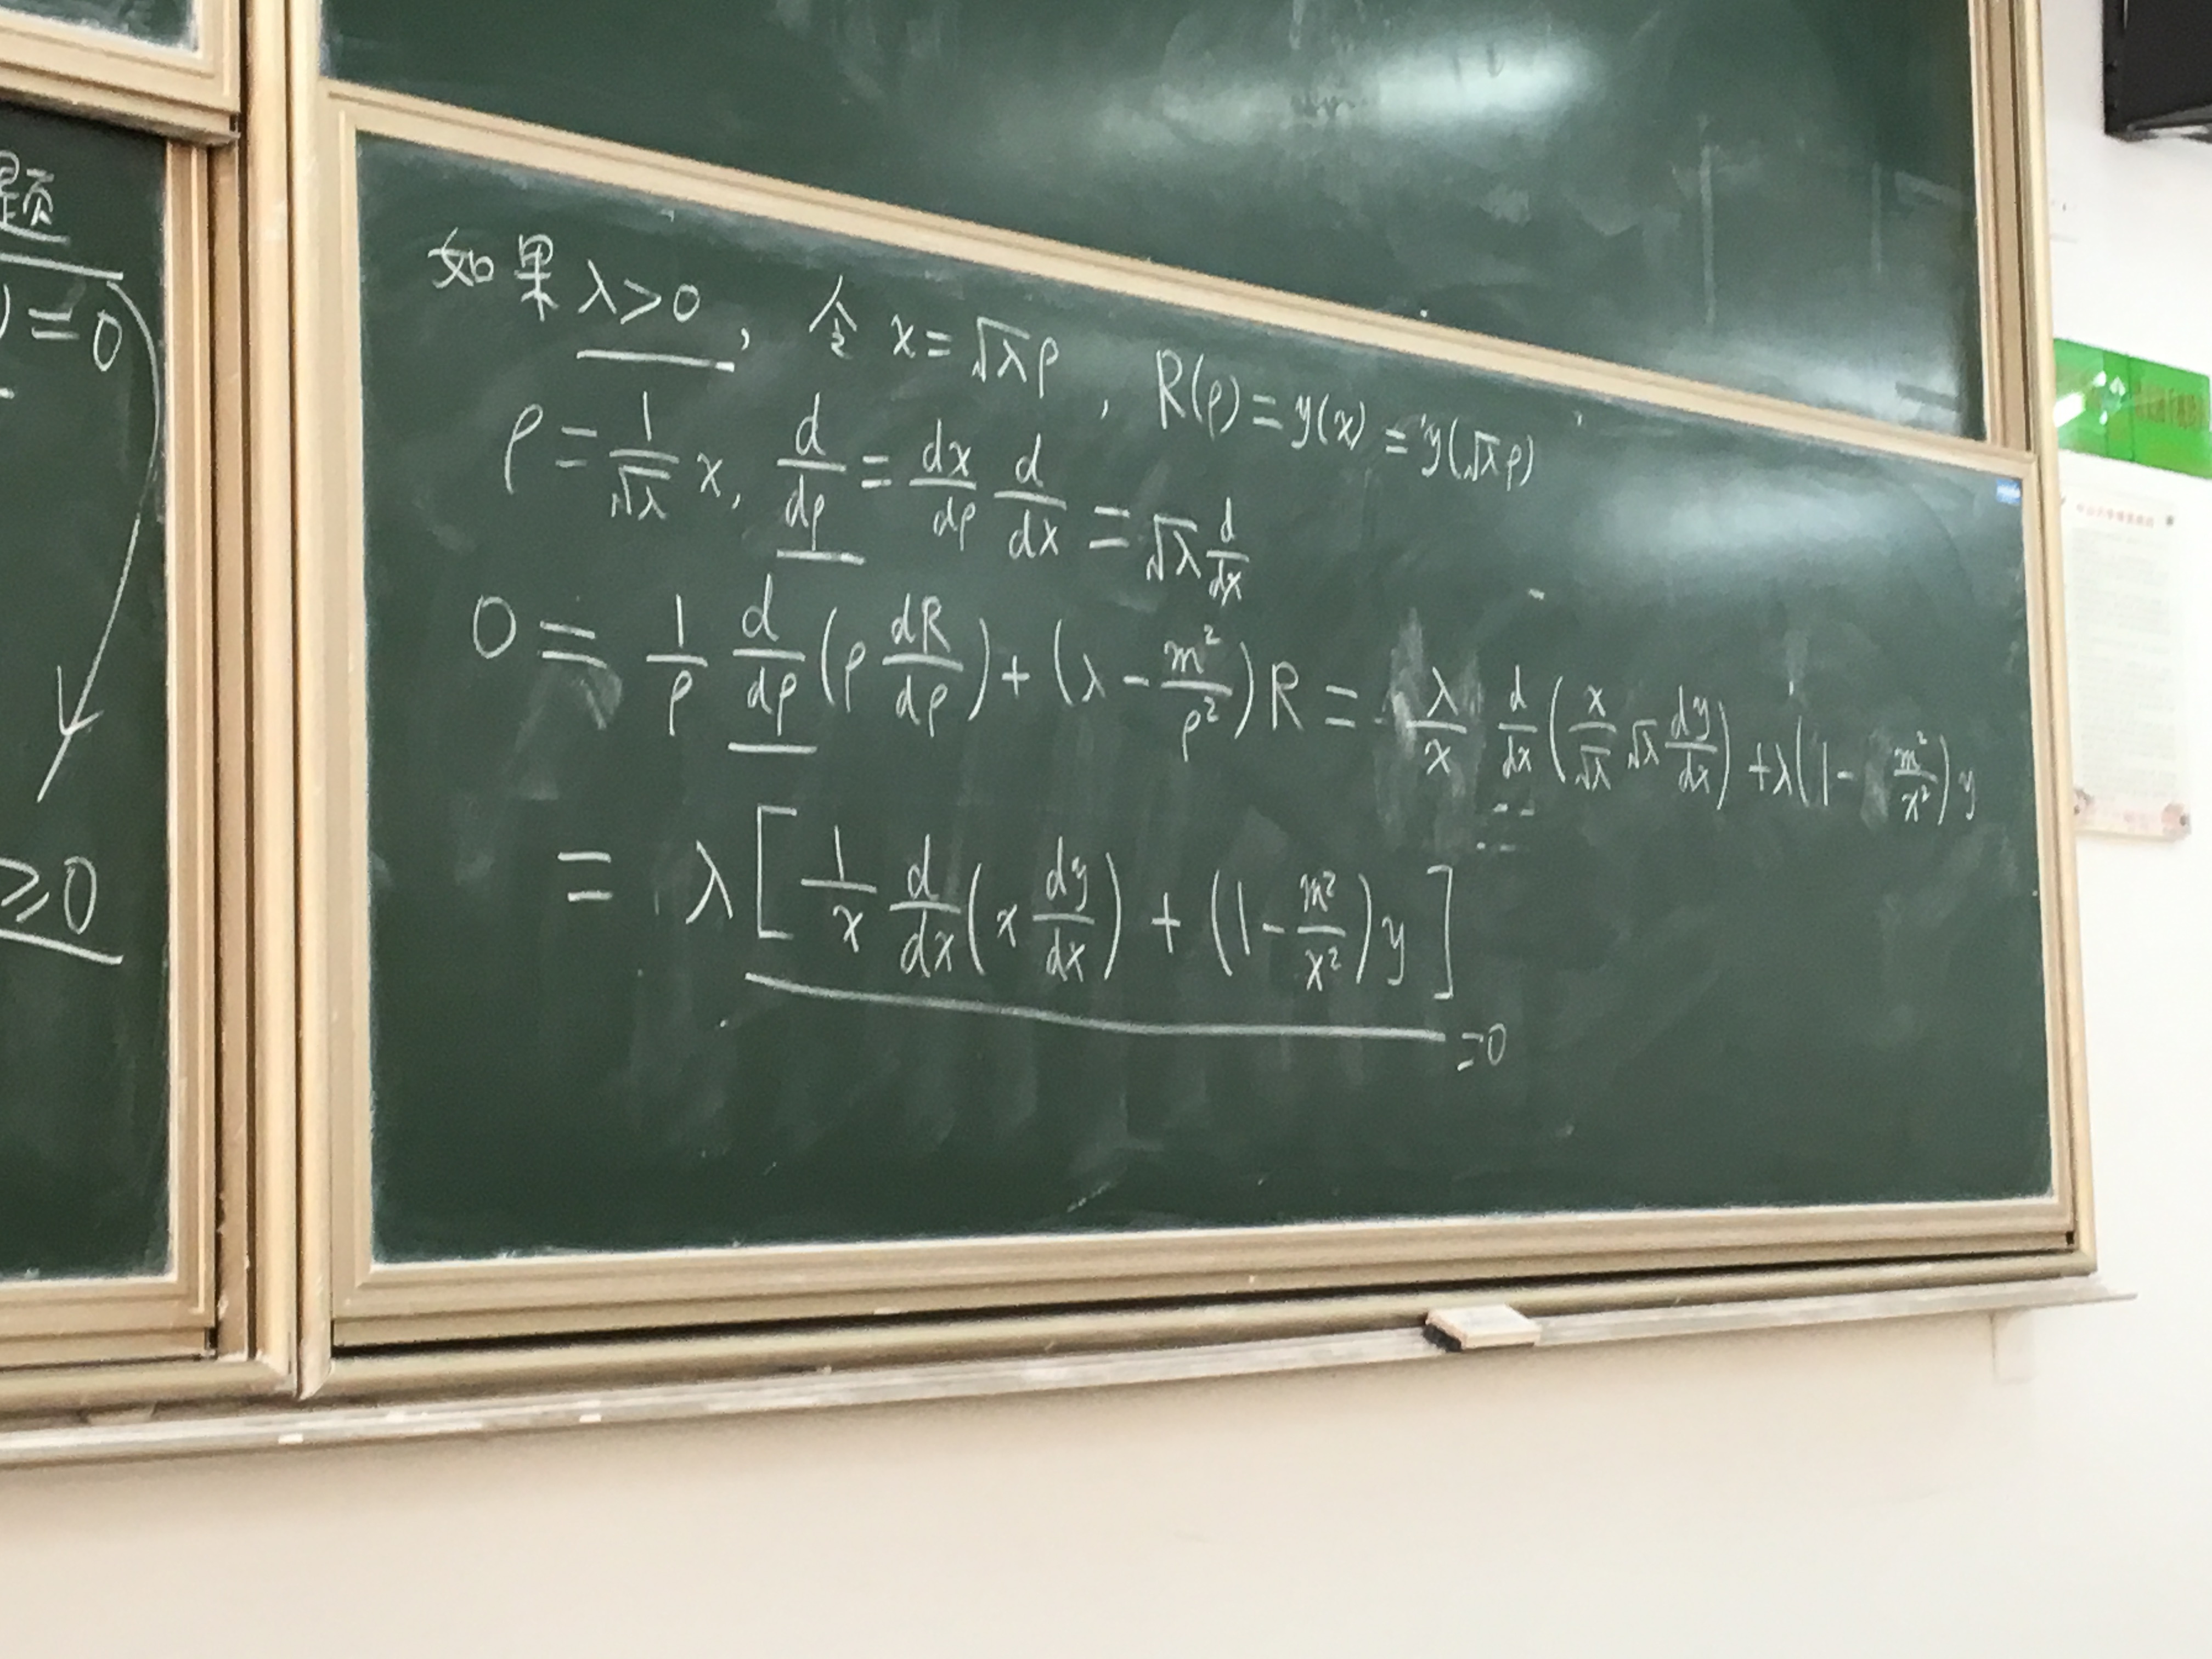 题
) = 0
≥0
如果 λ>0, 令 x = √λ ρ, R(ρ) = y(x) = y(√λ ρ)
ρ = 1/√λ x, d/dρ = dx/dρ d/dx = √λ d/dx
0 = 1/ρ d/dρ (ρ dR/dρ) + (λ - m²/ρ²) R = λ/x d/dx (x/√λ √λ dy/dx) + λ(1 - m²/x²) y
= λ [ 1/x d/dx (x dy/dx) + (1 - m²/x²) y ]
=0